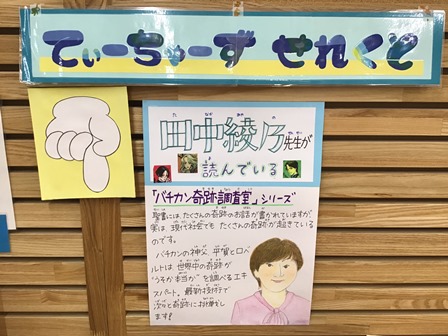 てぃーちゃーず せれくと
田中綾乃先生が
読んでいる
「バチカン奇跡調査官」シリーズ
聖書には、たくさんの奇跡のお話が書かれていますが、
実は、現代社会でも たくさんの奇跡が起きている
のです。
バチカンの神父、平賀とロベ
ルトは 世界中の奇跡が
“うそか本当か”を調べるエキ
スパート。最新技術で
次々と奇跡にお挑戦し
ます!